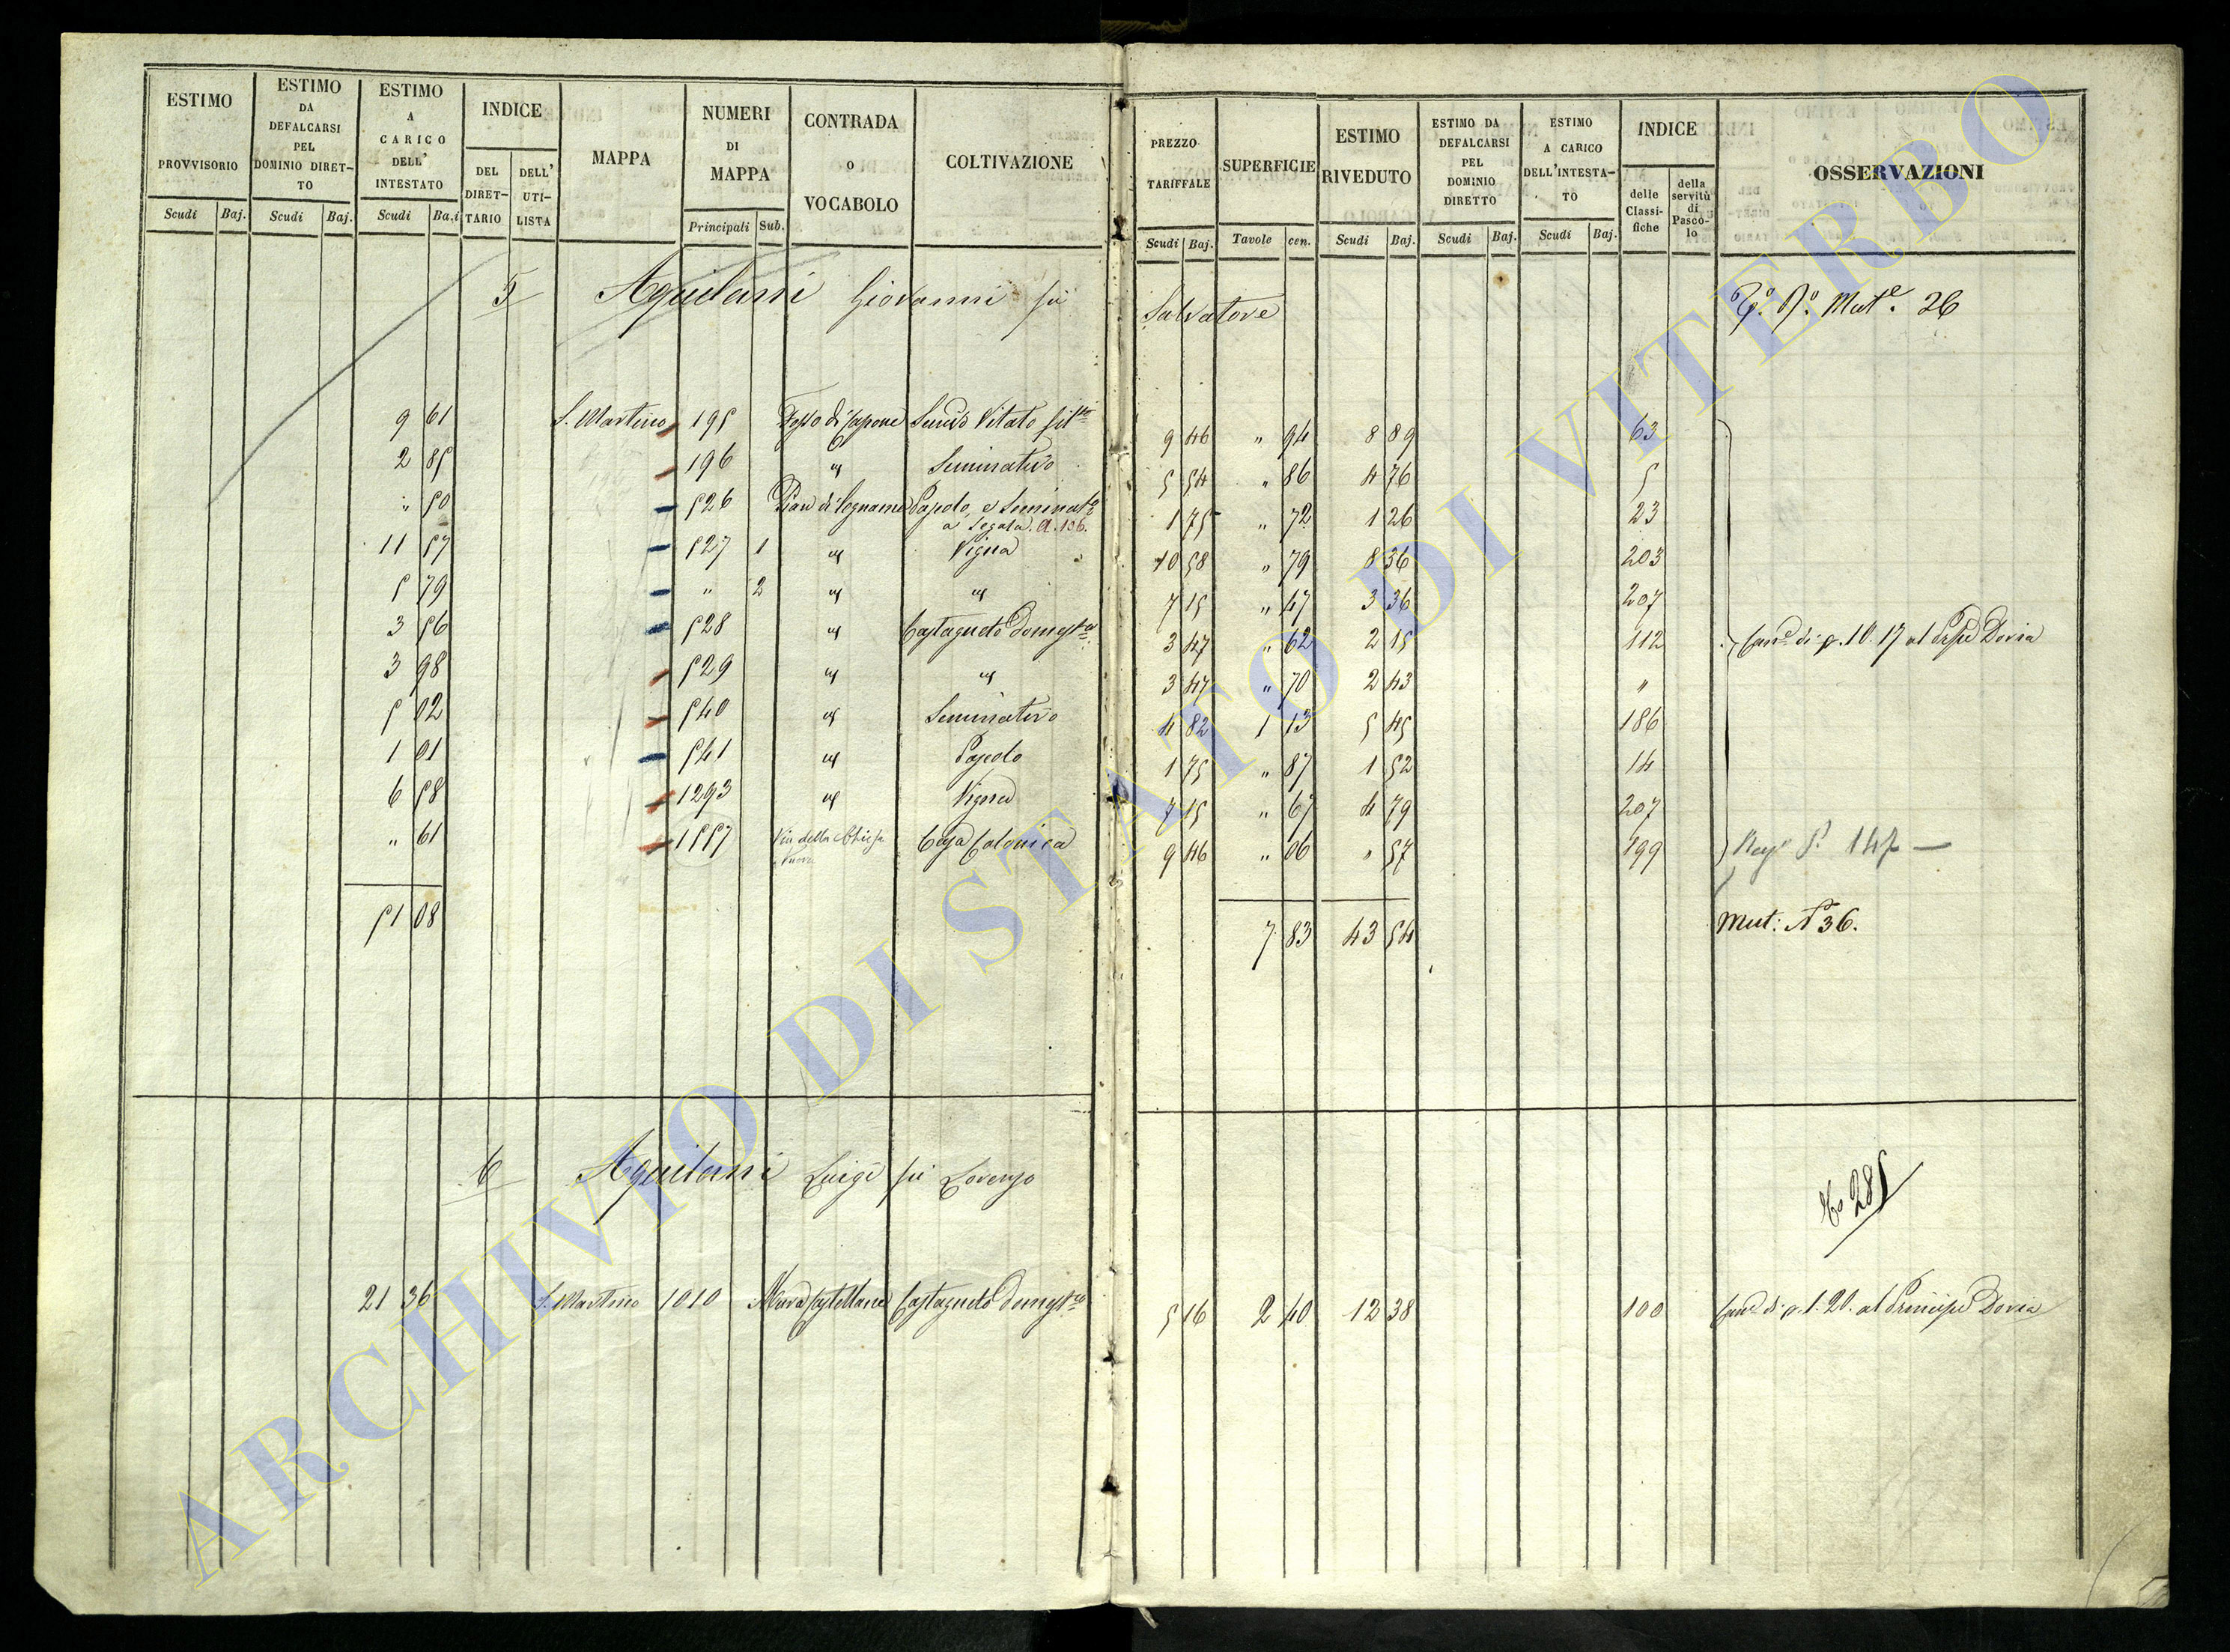 ESTIMO PROVVISORIO Scudi Baj.
ESTIMO DA DEFALCARSI PEL DOMINIO DIRETTO Scudi Baj.
ESTIMO A CARICO DELL' INTESTATO Scudi Baj.
INDICE DEL DIRETTARIO DELL' UTILISTA
MAPPA
NUMERI DI MAPPA Principali Sub.
CONTRADA o VOCABOLO
COLTIVAZIONE
PREZZO TARIFFALE Scudi Baj.
SUPERFICIE Tavole cen.
ESTIMO RIVEDUTO Scudi Baj.
ESTIMO DA DEFALCARSI PEL DOMINIO DIRETTO Scudi Baj.
ESTIMO A CARICO DELL'INTESTATO Scudi Baj.
INDICE delle Classifiche della servitù di Pascolo
OSSERVAZIONI
5 Aquilani Giovanni fu Salvatore Mut.e 26
9 61 S. Martino 195 Fosso di Sapone Semivo Vitato 9 46 " 94 8 89 63
2 85 196 " Seminativo 5 54 " 86 4 76 5
" 50 526 Pian di Legname Pascolo, e Seminat 1 75 " 72 1 26 23
a Segala. A. 106.
11 57 527 1 " Vigna 10 58 " 79 8 36 203
5 79 " 2 " " 7 15 " 47 3 36 207
3 56 528 " Castagneto Domesto 3 47 " 62 2 15 112 di 10. 17 al Doria
3 98 529 " " 3 47 " 70 2 43 "
5 02 540 " Seminativo 4 82 1 13 5 45 186
1 01 541 " Pascolo 1 75 " 87 1 52 14
6 58 1293 " Vigna 7 15 " 67 4 79 207
" 61 1557 Via della Chiesa Nuova Casa Colonica 9 46 " 06 " 57 199
51 08 7 83 43 54 Mut: N 36.
6 Aquilani Luigi fu Lorenzo
285
21 36 S. Martino 1010 Mura Castellane Castagneto Domesto 5 16 2 40 12 38 100 di 1. 20. al Principe Doria
ARCHIVIO DI STATO DI VITERBO